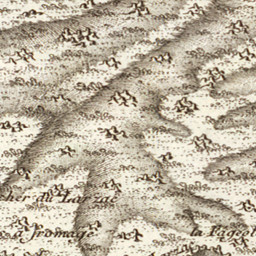 cher du Larzac
a fromage la Fageol